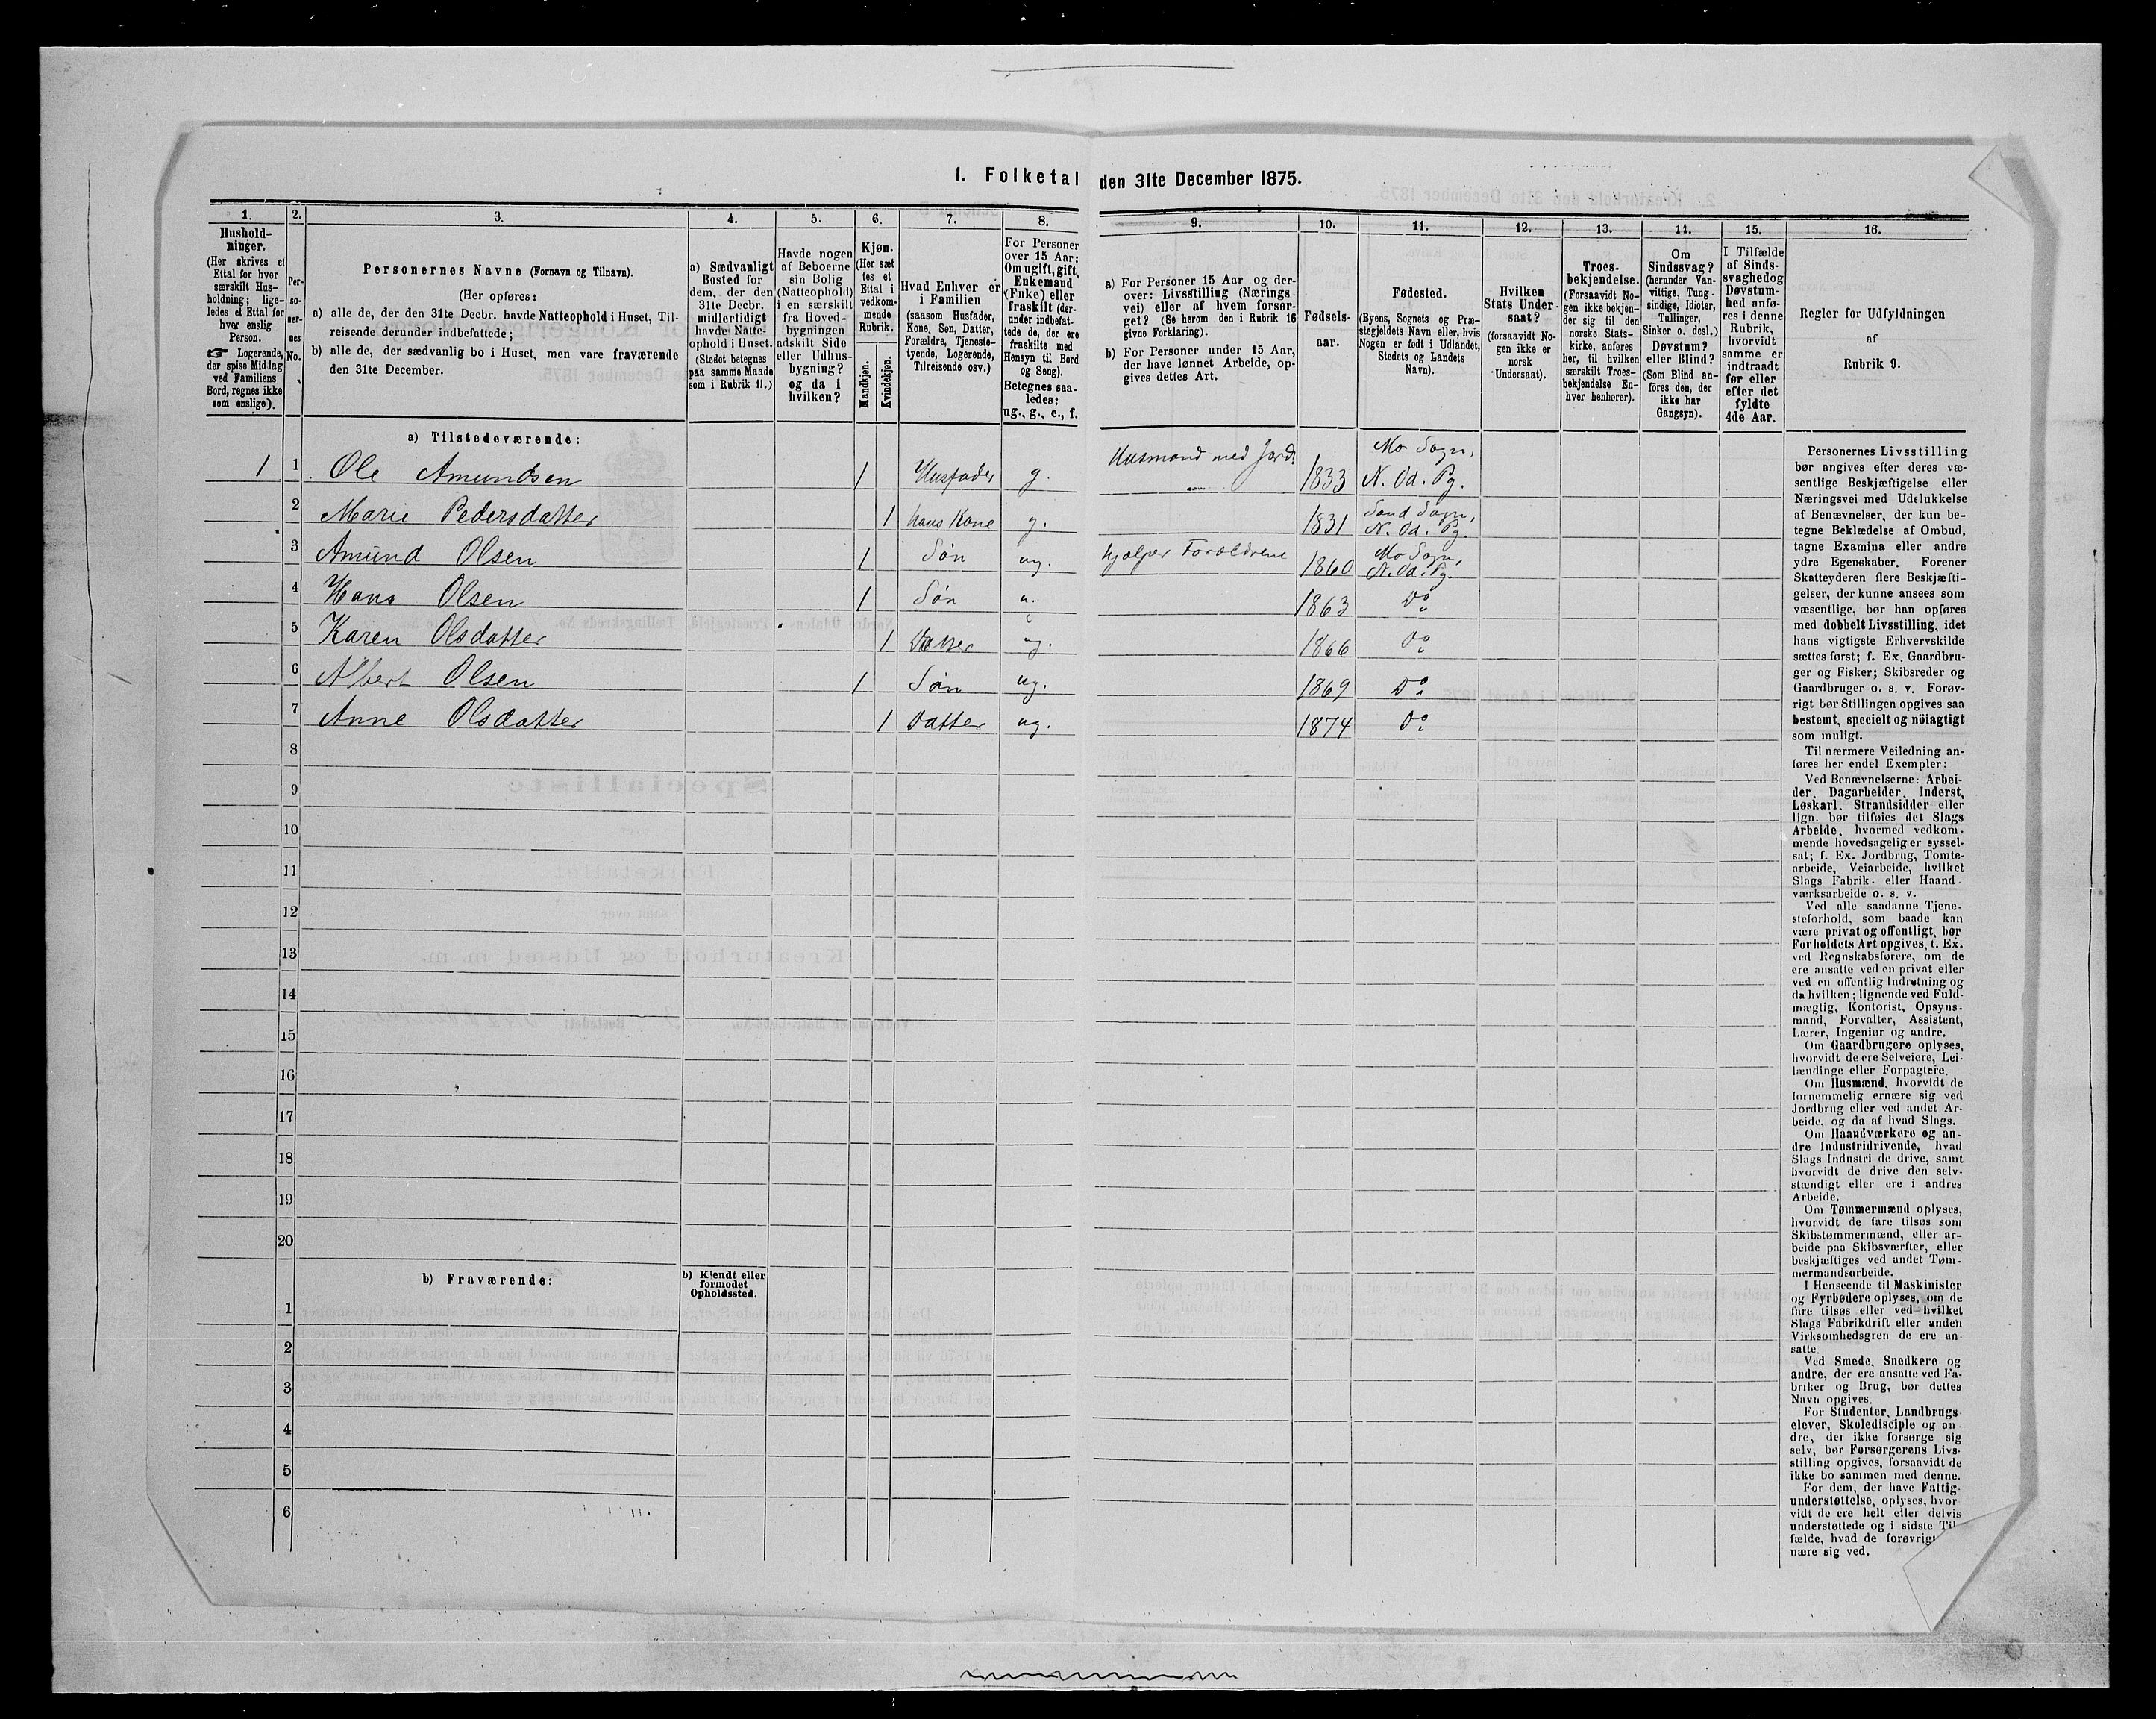 I. Folketal den 31te December 1875.
1. 2. 3. 4. 5. 6. 7. 8. 9. 10. 11. 12. 13. 14. 15. 16.
Hushold-
ninger.
(Her skrives et
Ettal for hver
særskilt Hus-
holdning; lige-
ledes et Ettal for
hver enslig
Person.
☞ Logerende,
der spise Middag
ved Familiens
Bord, regnes ikke
som enslige).
Per-
so-
ner-
nes
No.
Personernes Navne (Fornavn og Tilnavn).
(Her opføres:
a) alle de, der den 31te Decbr. havde Natteophold i Huset, Til-
reisende derunder indbefattede;
b) alle de, der sædvanlig bo i Huset, men vare fraværende
den 31te December.
a) Sædvanligt
Bosted for
dem, der den
31te Decbr.
midlertidigt
havde Natte-
ophold i Huset.
(Stedet betegnes
paa samme Maade
som i Rubrik 11.)
Havde nogen
af Beboerne
sin Bolig
(Natteophold)
i en særskilt
fra Hoved-
bygningen
adskilt Side
eller Udhus-
bygning?
og da i
hvilken?
Kjøn.
(Her sæt
tes et
Ettal i
vedkom-
mende
Rubrik.
Mandkjøn.
Kvindekjøn.
Hvad Enhver er
i Familien
(saasom Husfader,
Kone, Søn, Datter,
Forældre, Tjeneste-
tyende, Logerende,
Tilreisende osv.)
For Personer
over 15 Aar:
Om ugift, gift,
Enkemand
(Enke) eller
fraskilt (der-
under indbefat-
tede de, der ere
fraskilte med
Hensyn til Bord
og Seng).
Betegnes saa-
ledes:
ug., g., e., f.
a) For Personer 15 Aar og der-
over: Livsstilling (Nærings
vei) eller af hvem forsør-
get? (Se herom den i Rubrik 16
givne Forklaring).
b) For Personer under 15 Aar,
der have lønnet Arbeide, op-
gives dettes Art.
Fødsels-
aar.
Fødested.
(Byens, Sognets og Præ-
stegjeldets Navn eller, hvis
Nogen er født i Udlandet,
Stedets og Landets
Navn).
Hvilken
Stats Under-
saat?
(forsaavidt No-
gen ikke er
norsk
Undersaat).
Troes-
bekjendelse.
(Forsaavidt No-
gen ikke bekjen-
der sig til den
norske Stats-
kirke, anføres
her, til hvilken
særskilt Troes-
bekjendelse En-
hver henhører).
Om
Sindssvag?
(herunder Van-
vittige, Tung-
sindige, Idioter,
Tullinger,
Sinker o. desl.)
Døvstum?
eller Blind?
(Som Blind an-
føres den, der
ikke har
Gangsyn).
I Tilfælde
af Sinds-
svaghed og
Døvstum-
hed anfø-
res i denne
Rubrik,
hvorvidt
samme er
indtraadt
før eller
efter det
fyldte
4de Aar.
Regler for Udfyldningen
af
Rubrik 9.
a) Tilstedeværende:
1 1 Ole Amundsen 1 Husfader g. Husmand med Jord. 1833 Mo Sogn, N. Od. Pg.
2 Marie Pedersdatter 1 hans Kone g. 1831 Sand Sogn, N. Od. Pg.
3 Amund Olsen 1 Søn ug. hjælper Forældrene 1860 Mo Sogn, N. Od. Pg.
4 Hans Olsen 1 Søn u. 1863 Do
5 Karen Olsdatter 1 Datter ug. 1866 Do
6 Albert Olsen 1 Søn ug. 1869 Do
7 Anne Olsdatter 1 Datter ug. 1874 Do
8
9
10
11
12
13
14
15
16
17
18
19
20
b) Fraværende:
b) Kjendt eller
formodet
Opholdssted.
1
2
3
4
5
6
Personernes Livsstilling
bør angives efter deres væ-
sentlige Beskjæftigelse eller
Næringsvei med Udelukkelse
af Benævnelser, der kun be-
tegne Beklædelse af Ombud,
tagne Examina eller andre
ydre Egenskaber. Forener
Skatteyderen flere Beskjæfti-
gelser, der kunne ansees som
væsentlige, bør han opføres
med dobbelt Livsstilling, idet
hans vigtigste Erhvervskilde
sættes først; f. Ex. Gaardbru-
ger og Fisker; Skibsreder og
Gaardbruger o. s. v. Forøv-
rigt bør Stillingen opgives saa
bestemt, specielt og nöiagtigt
som muligt.
Til nærmere Veiledning an-
føres her endel Exempler:
Ved Benævnelserne: Arbei-
der, Dagarbeider, Inderst,
Løskarl, Strandsidder eller
lign. bør tilføies det Slags
Arbeide, hvormed vedkom-
mende hovedsagelig er syssel-
sat; f. Ex. Jordbrug, Tomte-
arbeide, Veiarbeide, hvilket
Slags Fabrik- eller Haand-
værksarbeide o. s. v.
Ved alle saadanne Tjene-
steforhold, som baade kan
være privat og offentligt, bør
Forholdets Art opgives, t. Ex.
ved Regnskabsførere, om de
ere ansatte ved en privat eller
ved en offentlig Indretning og
da hvilken; lignende ved Fuld-
mægtig, Kontorist, Opsyns-
mand, Forvalter, Assistent,
Lærer, Ingeniør og andre.
Om Gaardbrugere oplyses,
hvorvidt de ere Selveiere, Lei-
lændinge eller Forpagtere.
Om Husmænd, hvorvidt de
fornemmelig ernære sig ved
Jordbrug eller ved andet Ar-
beide, og da af hvad Slags.
Om Haandværkere og an-
dre Industridrivende, hvad
Slags Industri de drive, samt
hvorvidt de drive den selv-
stændigt eller ere i andres
Arbeide.
Om Tømmermænd oplyses,
hvorvidt de fare tilsøs som
Skibstømmermænd, eller ar-
beide paa Skibsværfter, eller
beskjæftiges ved andet Tøm-
mermandsarbeide.
I Henseende til Maskinister
og Fyrbødere oplyses, om de
fare tilsøs eller ved hvilket
Slags Fabrikdrift eller anden
Virksomhedsgren de ere an-
satte.
Ved Smede, Snedkere og
andre, der ere ansatte ved Fa-
briker og Brug, bør dettes
Navn opgives.
For Studenter, Landbrugs-
elever, Skoledisciple og an-
dre, der ikke forsørge sig
selv, bør Forsørgerens Livs-
stilling opgives, forsaavidt de
ikke bo sammen med denne.
For dem, der have Fattig-
understøttelse, oplyses, hvor-
vidt de ere helt eller delvis
understøttede og i sidste Til-
fælde, hvad de forøvrigt
nære sig ved.